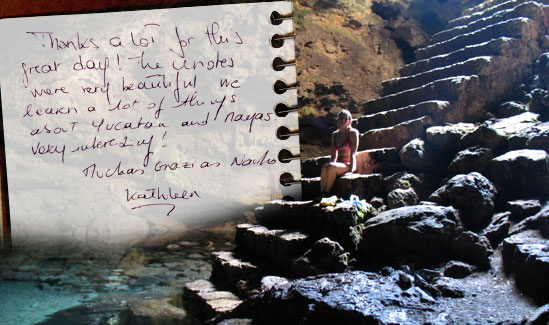 Thanks a lot for this
great day! The cenotes
were very beautiful we
learn a lot of things
about Yucatan and Mayas
very interesting!
Muchas Grazias Nacho
Kathleen